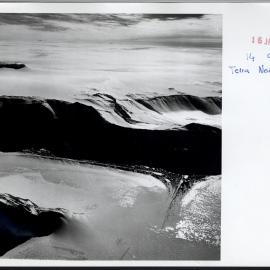 16 JA
14
Terra No